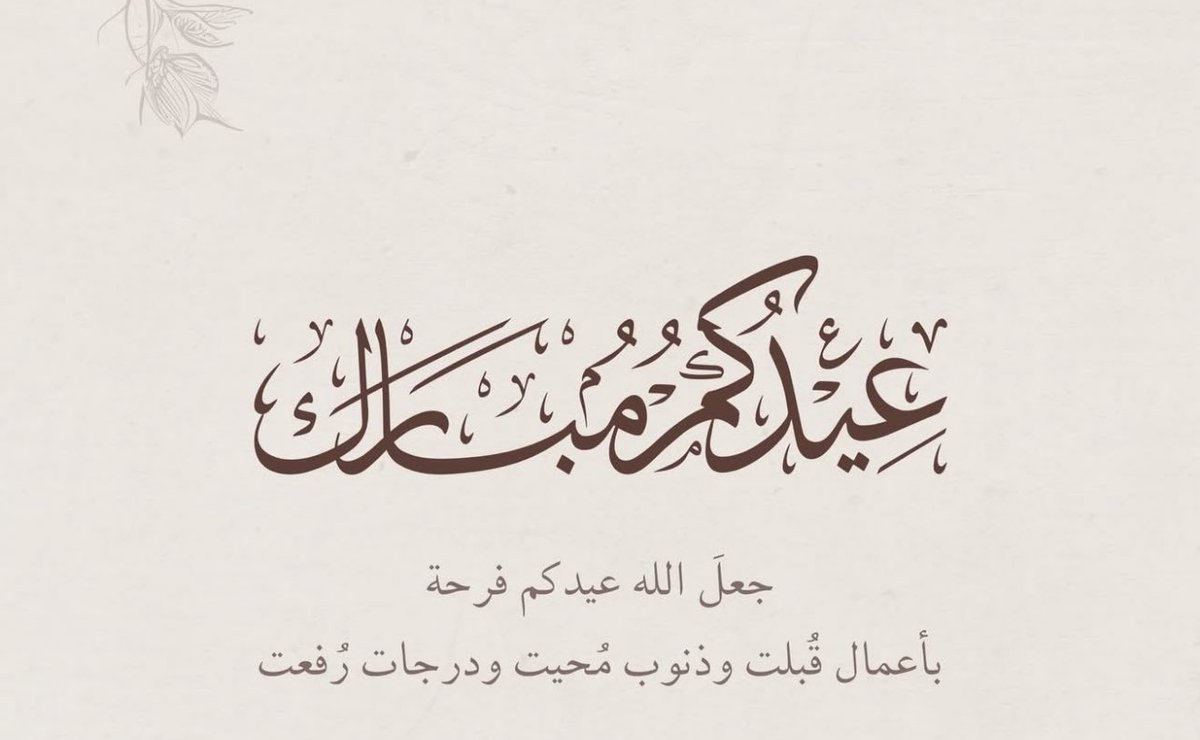 عِيْدُكُمْ مُبَارَك
جعلَ الله عيدكم فرحة
بأعمال قُبلت وذنوب مُحيت ودرجات رُفعت